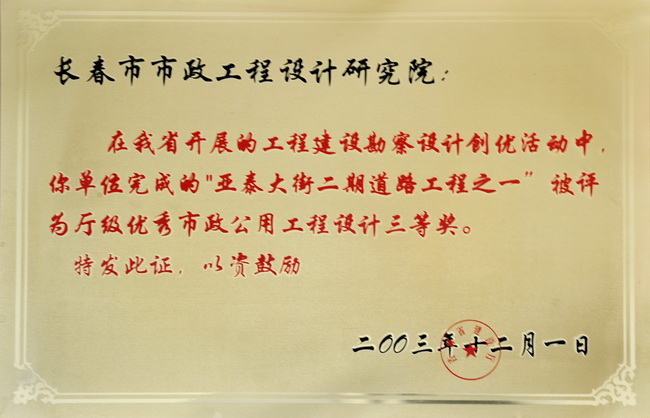 长春市市政工程设计研究院:
在我省开展的工程建设勘察设计创优活动中,
你单位完成的"亚泰大街二期道路工程之一"被评
为厅级优秀市政公用工程设计三等奖。
特发此证,以资鼓励
二00三年十二月一日